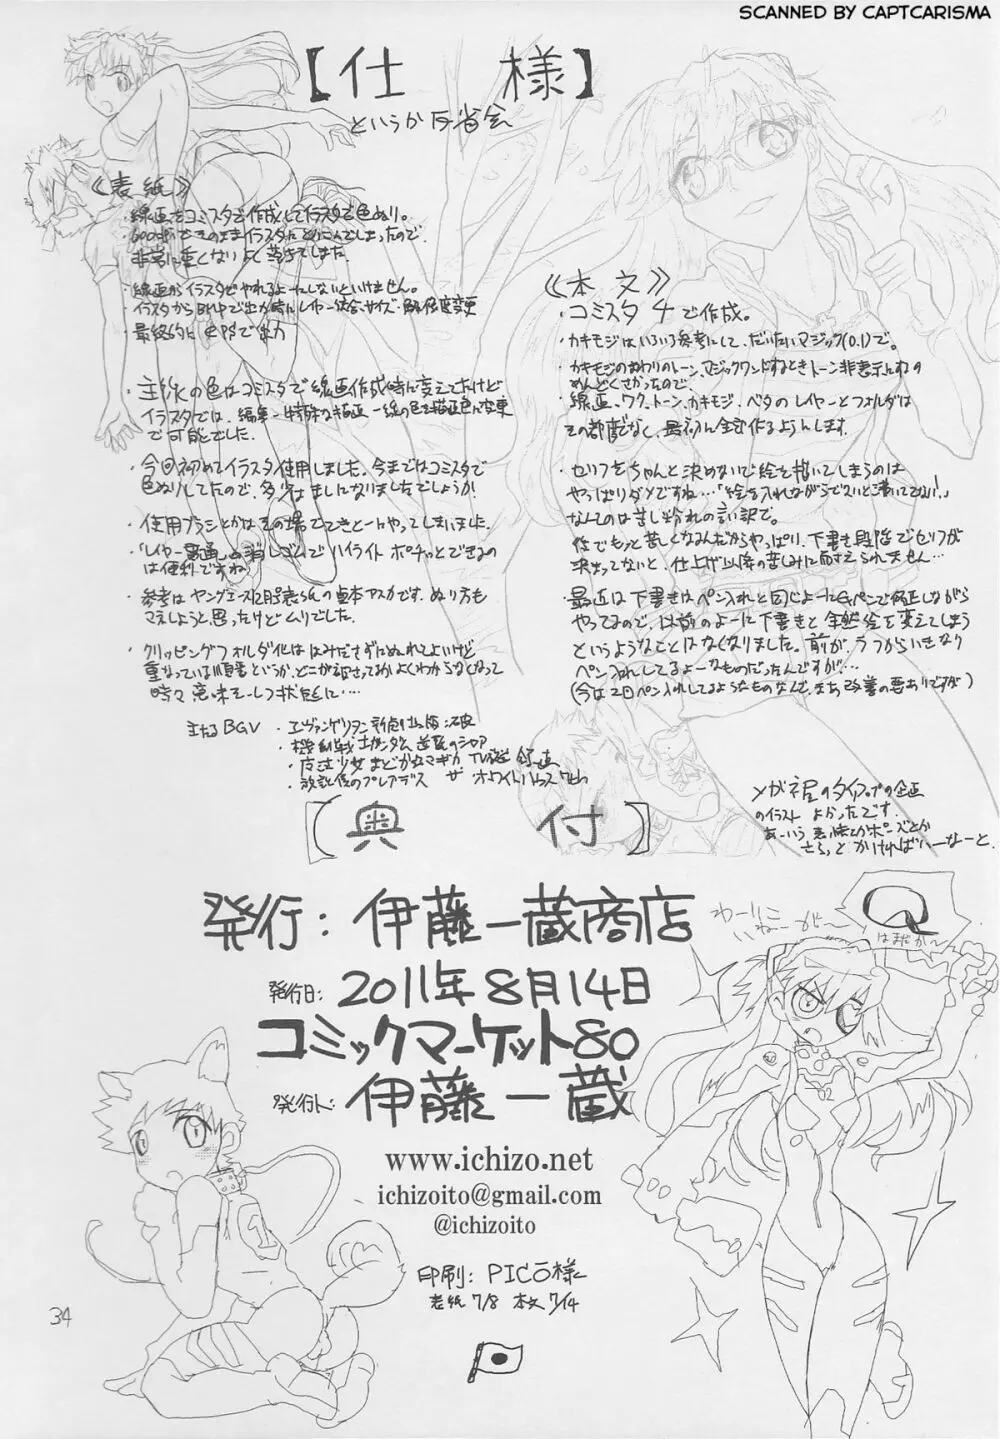 SCANNED BY CAPTCARISMA
【仕 様】
というか反省会
《表紙》
・線画をコミスタで作成してイラスタで色ぬり。
600dpiでそのままイラスタにとりこんでしまったので、
非常に重くないよく落ちてしました
・線画からイラスタでやれるよーにしないといけません。
・イラスタからBMPで出力時にレイヤー結合、サイズ・解像度変更
・最終的にEPSで出力
・主線の色はコミスタで線画作成時に変えてたけど
イラスタでは、編集→特殊な描画→線の色を描画色に変更
で可能でした。
・今回初めてイラスタ使用しました。今まではコミスタで
色ぬりしてたので、多少はましになりましたでしょうか!
・使用ブラシとかはその場でてきとーにやってしまいました。
・「レイヤー貫通」の消しゴムでハイライト ポチっとできるの
は便利ですね
・参考はヤングエース12月号表紙の貞本アスカです。ぬり方も
マネしようと思ったけどムリでした。
・クリッピングフォルダ化ははみださずにぬれてよいけど
重なっている順番というか、どこが起こってるかよくわからなくなって
時々意味ネーレフ状態に…
主なるBGV ・エヴァンゲリヲン新劇場版:破
・機動戦士ガンダム 逆襲のシャア
・魔法少女まどか☆マギカ TV放送
・放課後のプレアデス ザ ホワイトハウス
《本文》
・コミスタ4で作成。
・カキモジはいろいろ参考にして、だいたいマジック(0.1)で。
・カキモジのまわりのトーン、マジックワンドするときトーン非表示にするの
めんどくさかったので、
線画、ワク、トーン、カキモジ、ベタのレイヤーとフォルダは
その都度でなく、最初に全部作るようにします。
・セリフをちゃんと決めないで絵を描いてしまうのは
やっぱりダメですね…「絵を入れながらでないと湧いてこない!」
なんてのは苦し紛れの言い訳で。
後でもっと苦しくなるんだからやっぱり、下書き段階でセリフが
決まってないと、仕上げ以降の苦しみに耐えられません…
・最近は下書きはペン入れと同じよーにGペンで修正しながら
やってるので、以前のよーに下書きと全然絵を変えてしまう
というようなことはなくなりました。前が、ラフからいきなり
ペン入れしてるよーなものだったんですが…
(今は2回ペン入れしてるようなものなんで、まだ改善の要ありですが)
メガネ屋のタイアップの企画
のイラスト よかったです。
あーいう表情とかポーズとか
さらっと かければいーなーと。
【奥 付】
発行:伊藤一蔵商店
発行日:2011年8月14日
コミックマーケット80
発行人:伊藤一蔵
www.ichizo.net
ichizoito@gmail.com
@ichizoito
印刷:PICO様
表紙7/8 本文7/14
わー!!こ
いねーがー
Q
はまだか〜
02
1
34